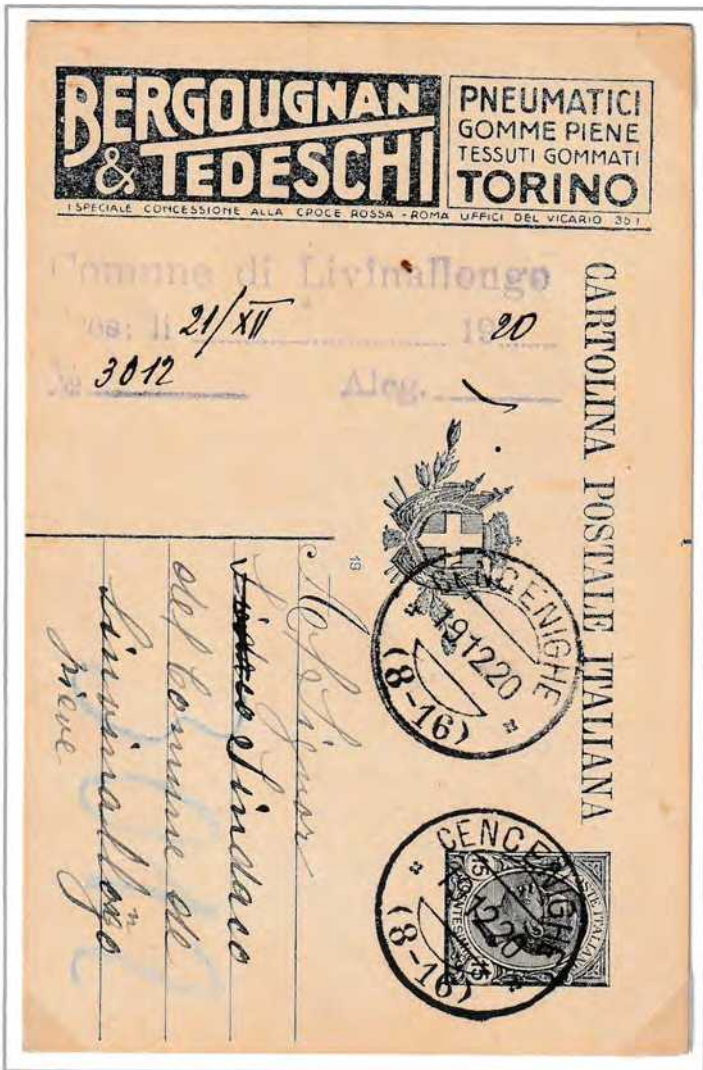 BERGOUGNAN
& TEDESCHI
PNEUMATICI
GOMME PIENE
TESSUTI GOMMATI
TORINO
SPECIALE CONCESSIONE ALLA CROCE ROSSA - ROMA UFFICI DEL VICARIO 35
Comune di Livinallongo
Pres: li 21/XII 1920
№ 3012 Aleg.
CARTOLINA POSTALE ITALIANA
19
CENCENIGHE
19.12.20
(8-16)
CENCENIGHE
19.12.20
(8-16)
POSTE ITALIANE
CENTESIMI 15
Signor
Sindaco
del Comune de
Linvinallongo
Pieve